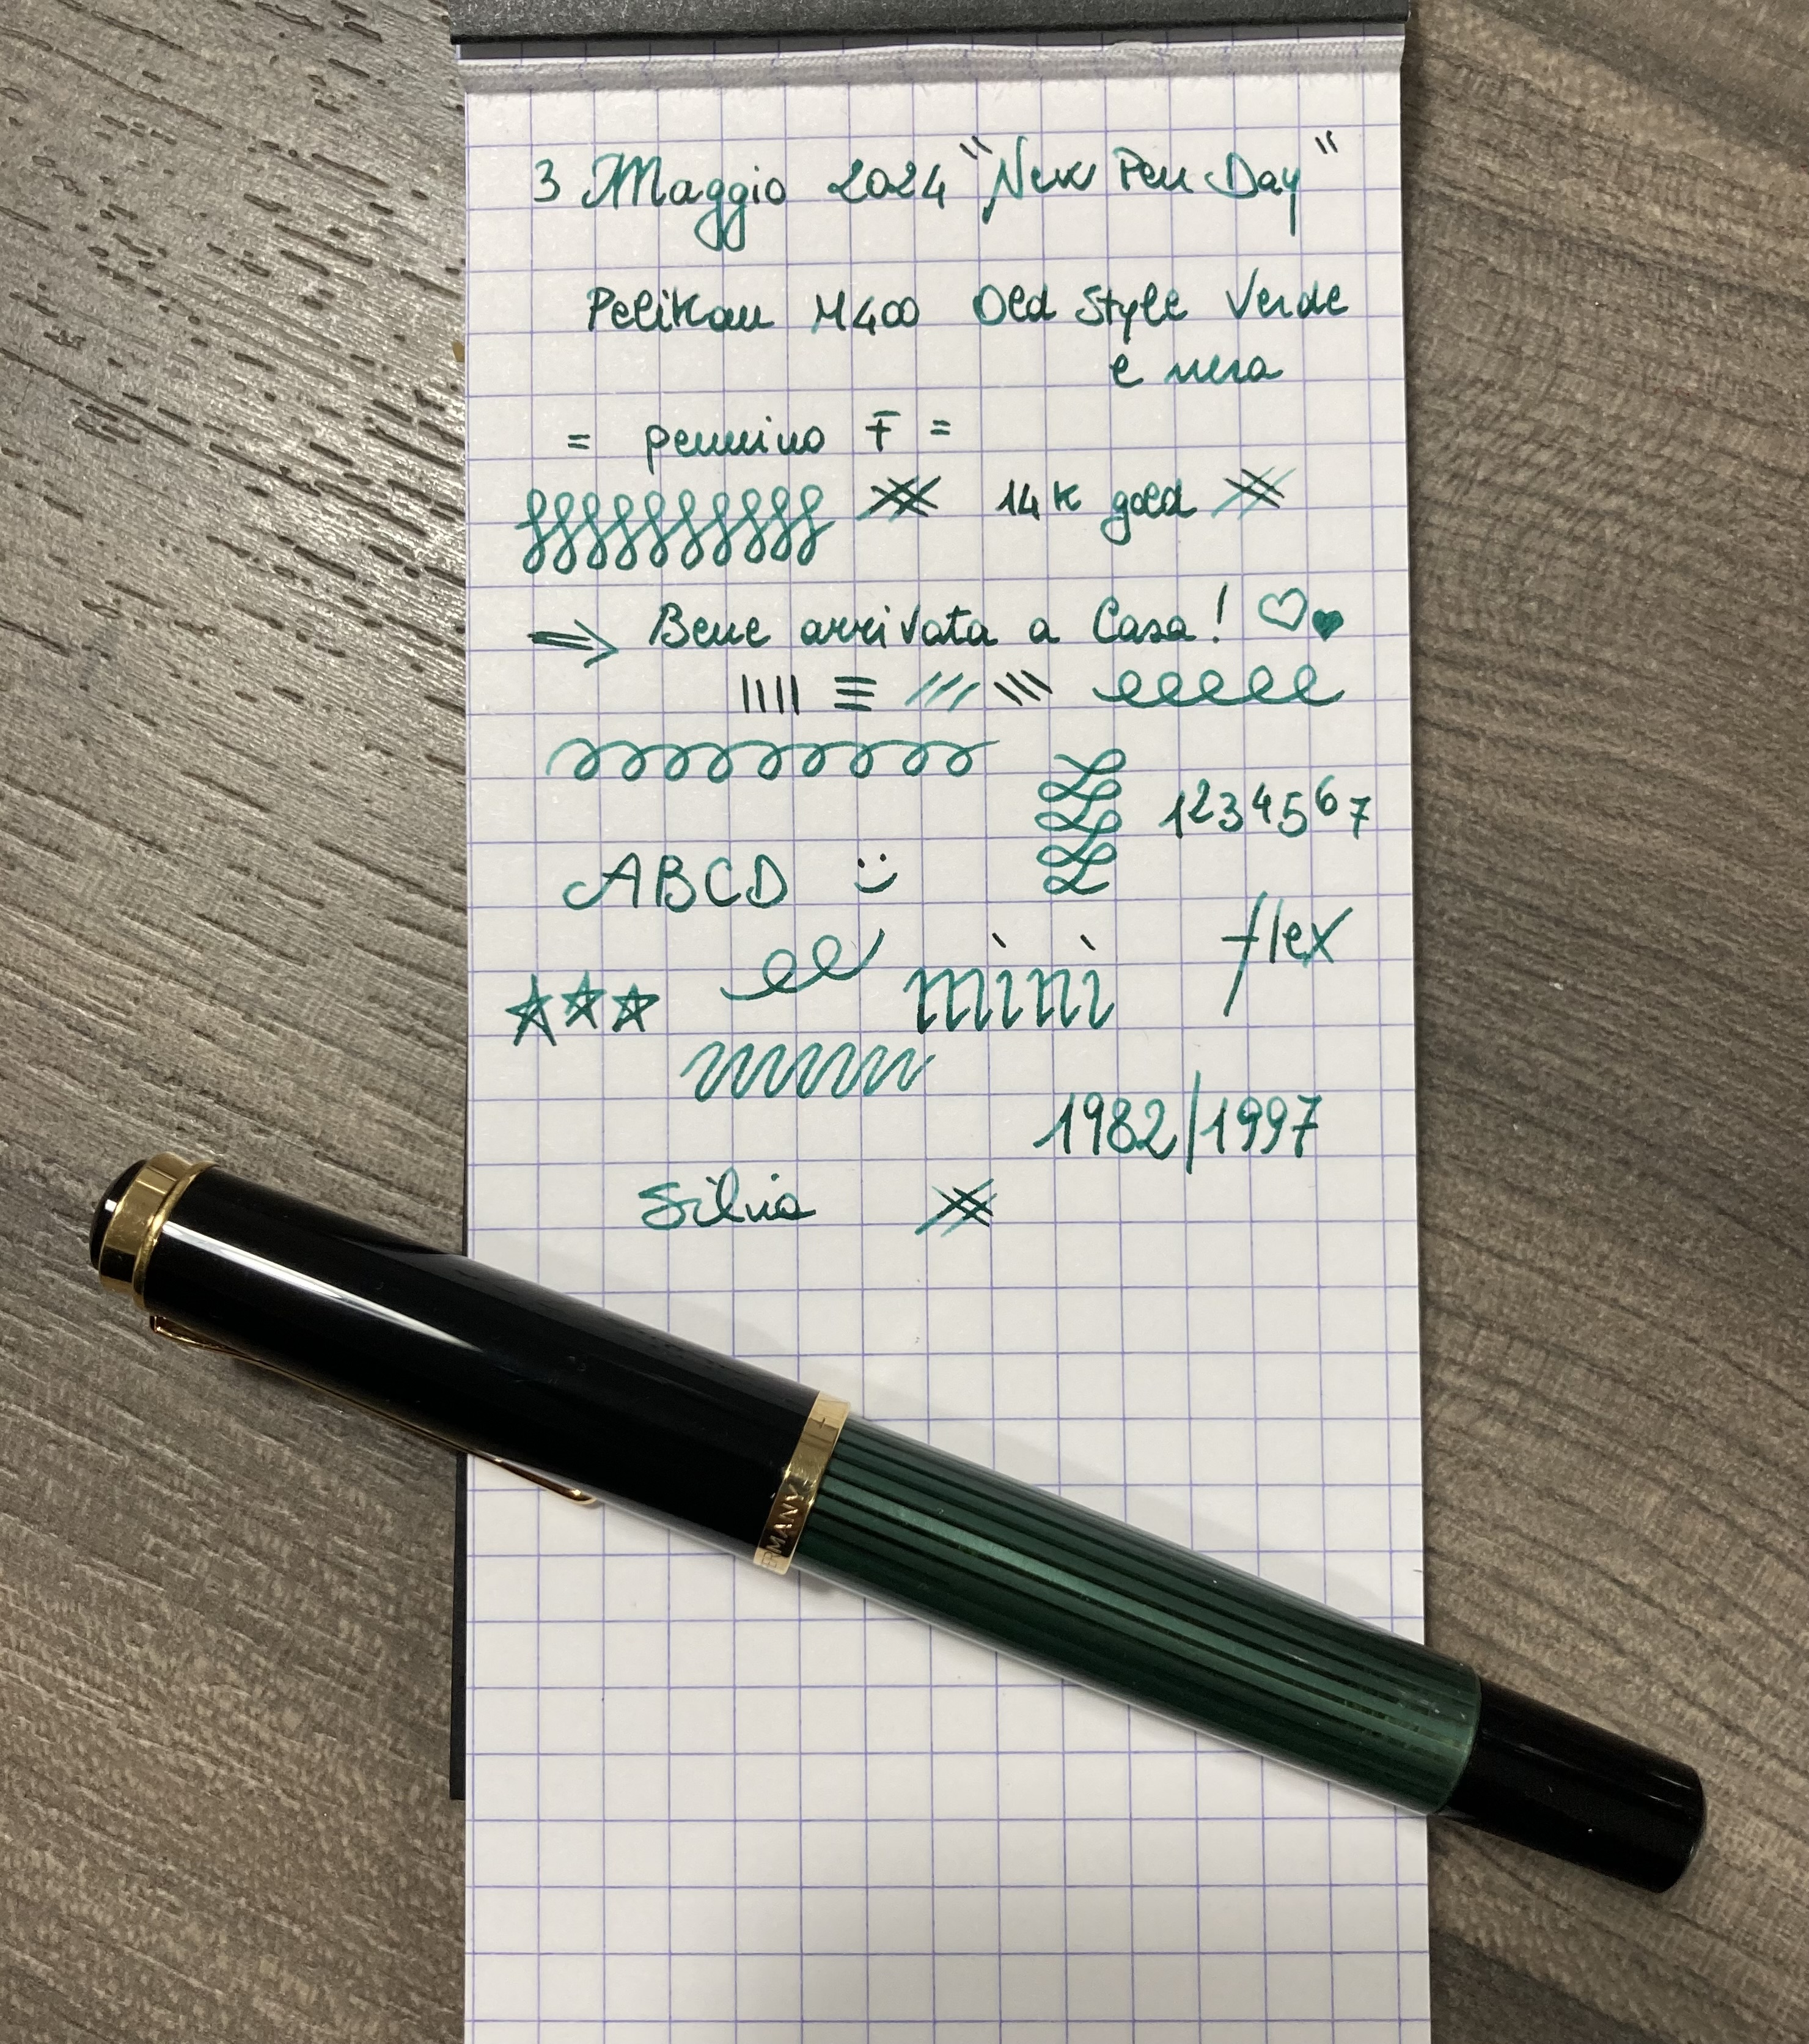 3 Maggio 2024 "New Pen Day"
Pelikan M400 Old Style Verde
e nera
= pennino F =
14K gold
⇒ Bene arrivata a Casa! ♡♥
1234567
ABCD
flex
mini
1982/1997
Silvia
RMANY